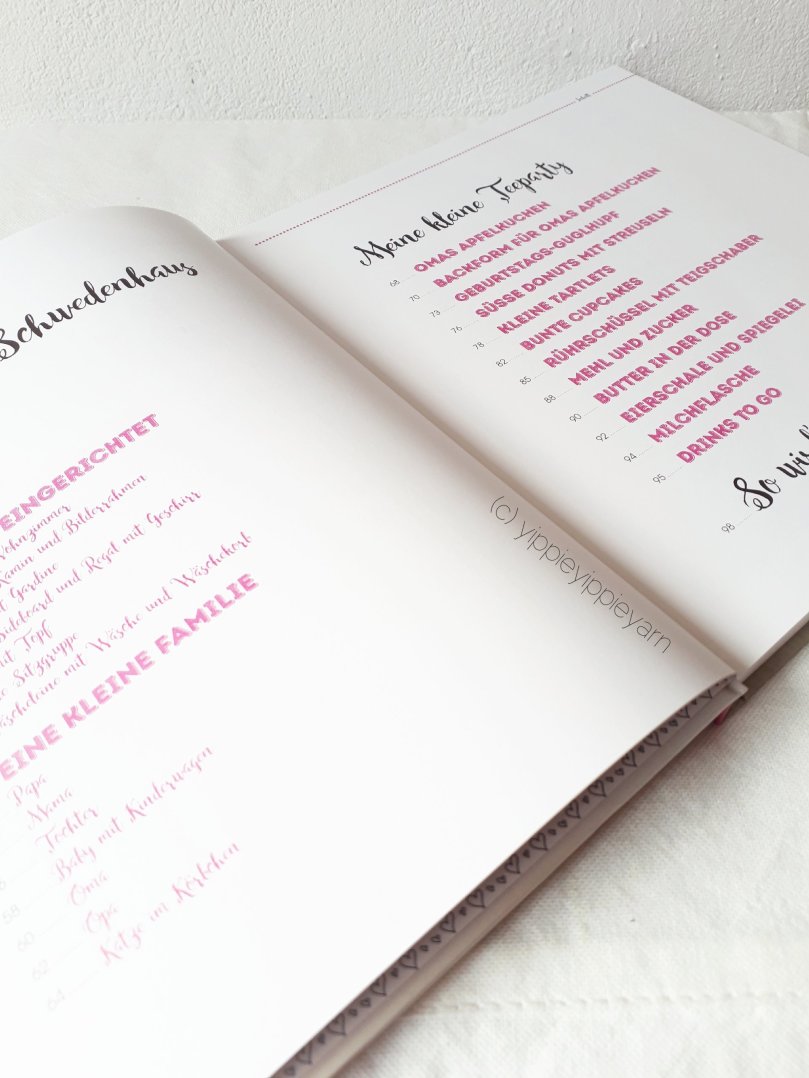 Schwedenhaus
EINGERICHTET
Wohnzimmer
Kamin und Bilderrahmen
Gardine
Sideboard und Regal mit Geschirr
mit Topf
Sitzgruppe
mit Wäsche und Wäschekorb
EINE KLEINE FAMILIE
Papa
Mama
Tochter
58 Baby mit Kinderwagen
60 Oma
62 Opa
64 Katze im Körbchen
Inhalt
Meine kleine Teeparty
68 OMAS APFELKUCHEN
70 BACKFORM FÜR OMAS APFELKUCHEN
73 GEBURTSTAGS-GUGLHUPF
76 SÜSSE DONUTS MIT STREUSELN
78 KLEINE TARTLETS
82 BUNTE CUPCAKES
85 RÜHRSCHÜSSEL MIT TEIGSCHABER
88 MEHL UND ZUCKER
90 BUTTER IN DER DOSE
92 EIERSCHALE UND SPIEGELEI
94 MILCHFLASCHE
95 DRINKS TO GO
98 So wir
(c) yippieyippieyarn